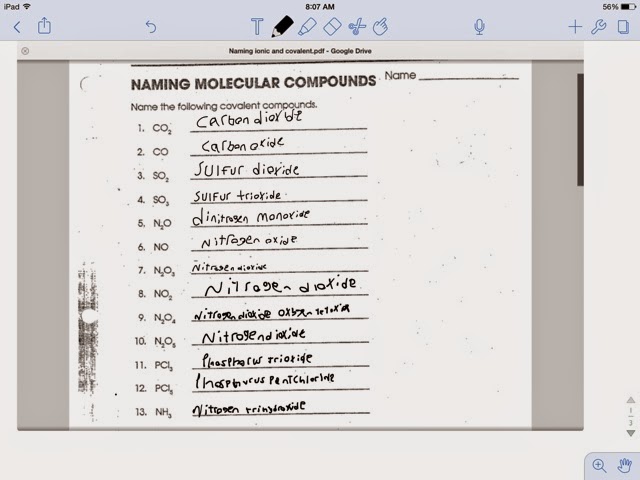 iPad 8:07 AM 56%
T
Naming ionic and covalent.pdf - Google Drive
NAMING MOLECULAR COMPOUNDS Name
Name the following covalent compounds.
1. CO₂ Carbon dioxide
2. CO Carbon oxide
3. SO₂ SUlFur dioxide
4. SO₃ SUlFur trioxide
5. N₂O dinitrogen monoxide
6. NO Nitrogen oxide
7. N₂O₃ Nitrogen dioxide
8. NO₂ Nitrogen dioxide
9. N₂O₄ Nitrogen dioxide oxygen
10. N₂O₅ Nitrogen dioxide
11. PCl₃ Phosphorus trioxide
12. PCl₅ Phosphurus Pentchloride
13. NH₃ Nitrogen trihydroxide
1
3